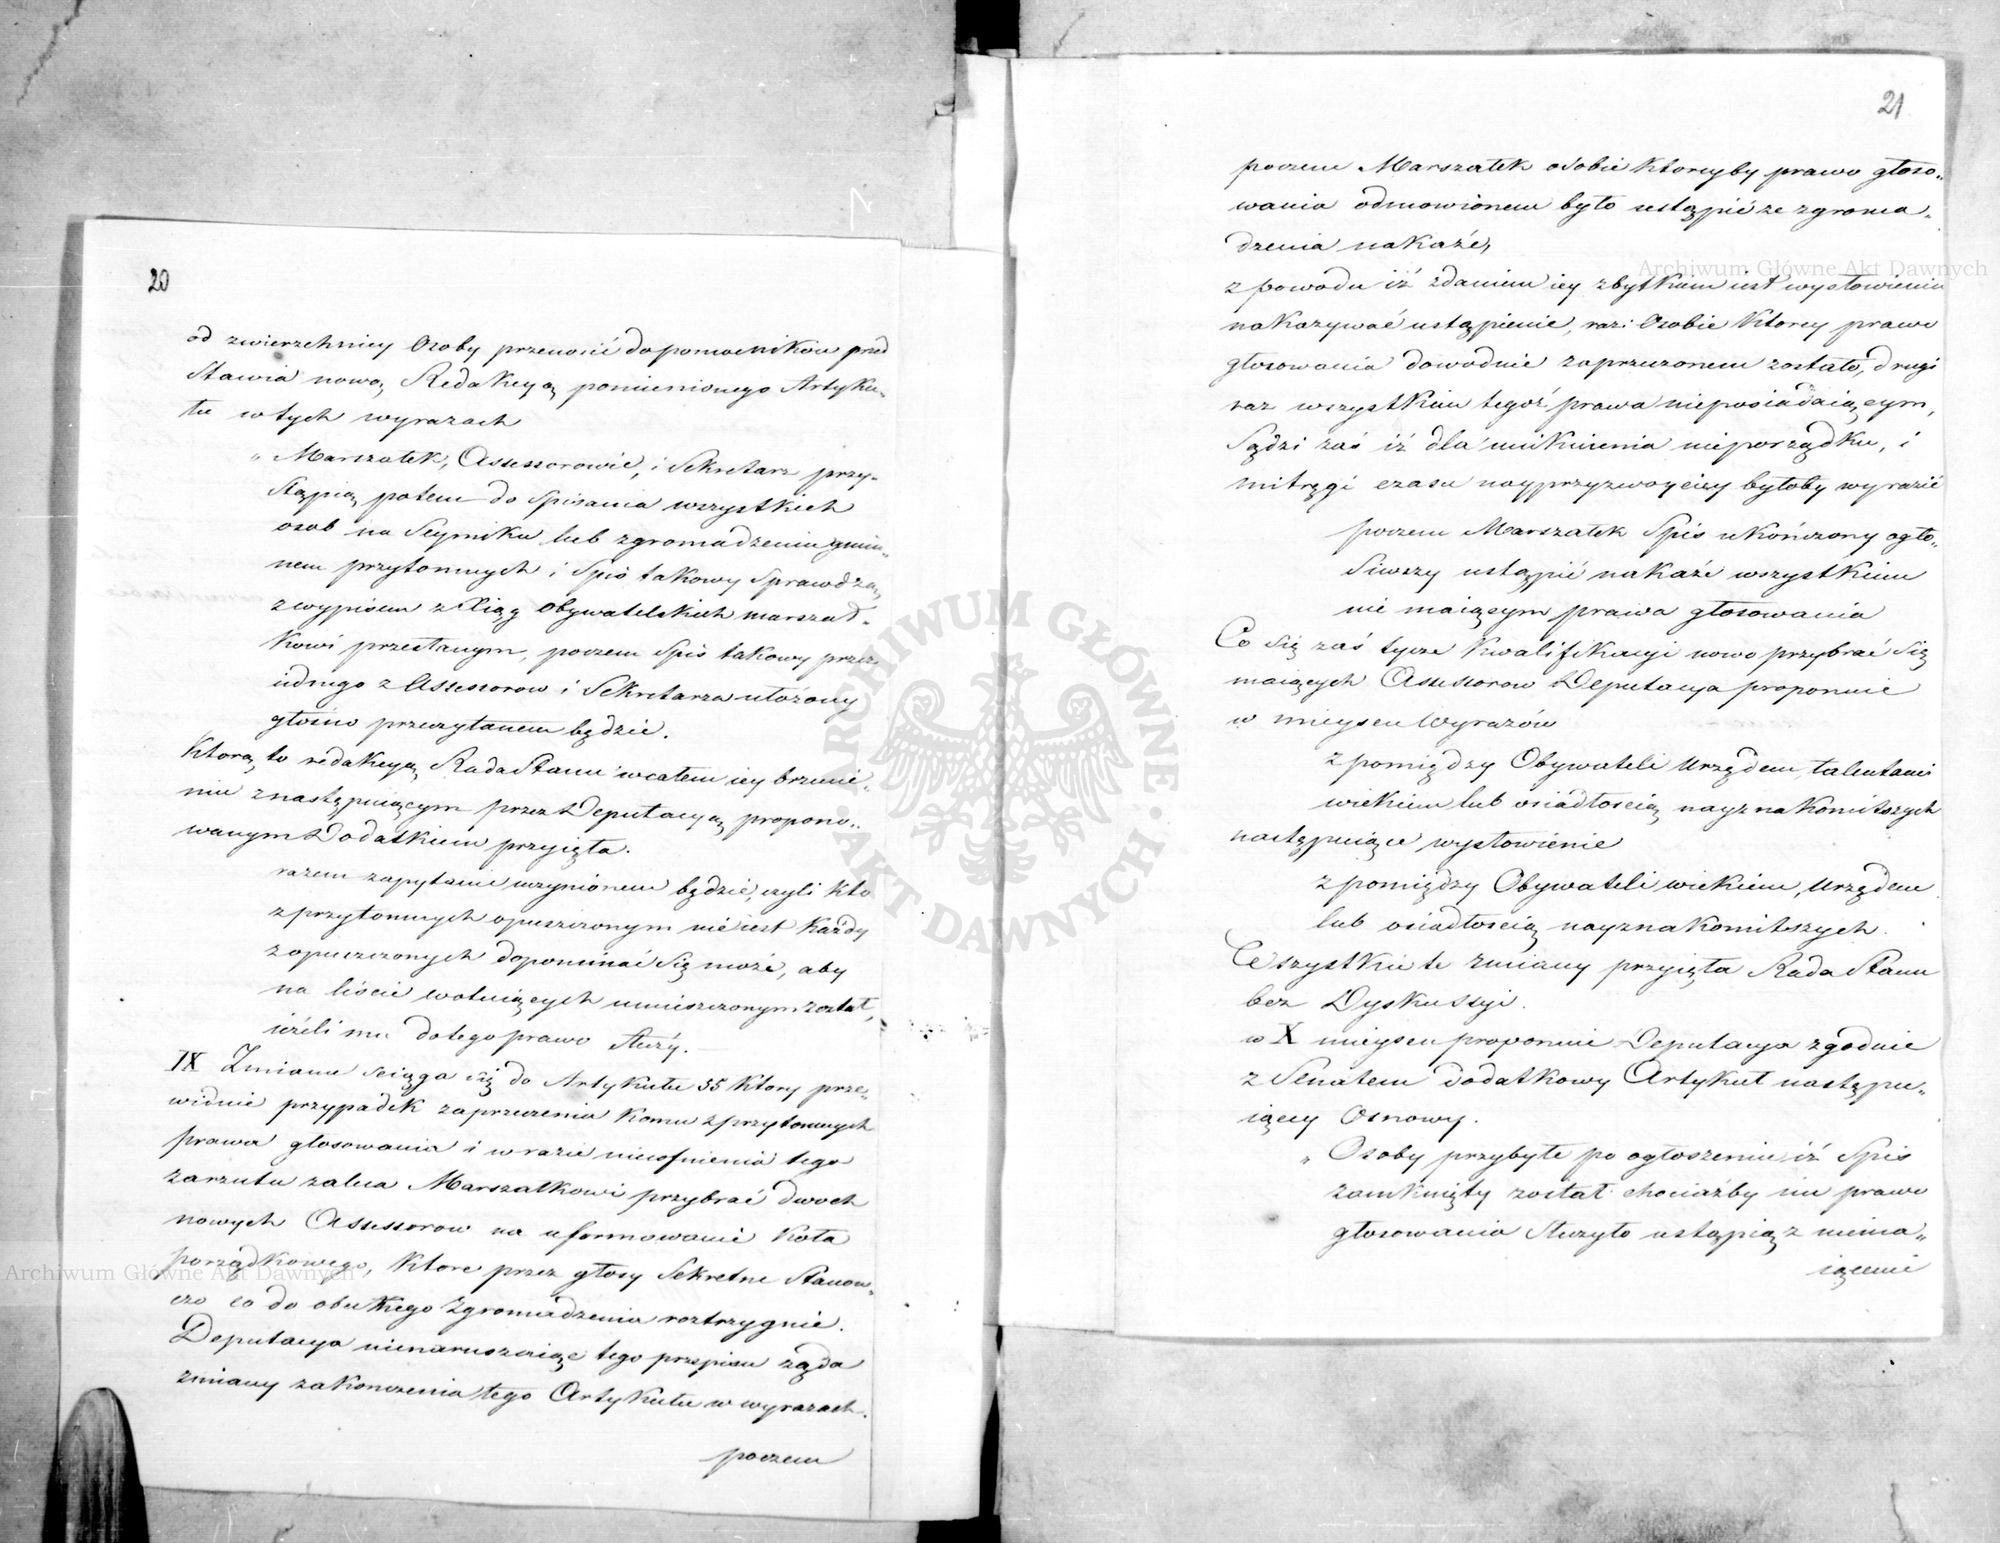 20
od zwierzchniey Osoby przenosić do pomocników przed
stawia nową Redakcyą pomienionego Artyku„
łu w tych wyrazach
„ Marszałek, Assessorowie, i Sekretarz przy„
stąpią potem do spisania wszystkich
osob na Seymiku lub zgromadzeniu gmin„
nem przytomnych i spis takowy sprawdzą
z wypisem z Xiąg Obywatelskich marszał„
kowi przesłanym, poczem spis takowy przez
iednego z Assessorow i Sekretarza ułożony
głośno przeczytanem będzie.
Ktorą to redakcyą Rada Stanu w całem iey brzmie„
niu z następuiącym przez Deputacyą propono„
wanym Dodatkiem przyięła.
razem zapytanie uczynionem będzie, czyli kto
z przytomnych opuszczonym nie iest Każdy
z opuszczonych dopominać się może, aby
na liście wotuiących umieszczonym został,
ieżeli mu do tego prawo służy.
IX Zmiana ściąga się do Artykułu 35 ktory prze„
widuie przypadek zaprzeczenia komu z przytomnych
prawa głosowania i w razie nieusunienia tego
zarzutu zaleca Marszałkowi przybrać dwoch
nowych Assessorow na uformowanie Koła
porządkowego, ktore przez głosy Sekretne stanow„
czo co do obcego Zgromadzenia roztrzygnie.
Deputacya nienaruszaiąc tego przepisu żąda
zmiany zakończenia tego Artykułu w wyrazach.
poczem
21
poczem Marszałek osobie ktoreyby prawo głoso„
wania odmowionem było ustąpić ze zgroma„
dzenia nakaże,
z powodu iż zdaniem iey zbytkiem iest wysłowienie
nakazywać ustąpienie, raz: Osobie ktorey prawo
głosowania dowodnie zaprzeczonem zostało, drugi
raz wszystkim tegoż prawa nieposiadaiącym,
Sądzi zaś iż dla uniknienia nieporządku, i
mitręgi czasu nayprzyzwoyciey byłoby wyrazić
poczem Marszałek Spis ukończony ogło„
siwszy ustąpić nakaże wszystkim
nie maiącym prawa głosowania
Co się zaś tycze kwalifikacyi nowo przybrać się
maiących Assessorow Deputacya proponuie
w mieyscu Wyrazów
z pomiędzy Obywateli Urzędem, talentami
wiekiem lub osiadłością nayznakomitszych
następuiące wysłowienie
z pomiędzy Obywateli wiekiem, Urzędem
lub osiadłością nayznakomitszych.
Wszystkie te zmiany przyięła Rada Stanu
bez Dyskussyi.
w X mieyscu proponuie Deputacya zgodnie
z Senatem dodatkowy Artykuł następu„
iącey Osnowy.
„ Osoby przybyłe po ogłoszeniu iż Spis
zamknięty został chociażby im prawo
głosowania służyło ustąpią z niema„
iącemi
ARCHIWUM GŁÓWNE AKT DAWNYCH
Archiwum Główne Akt Dawnych
Archiwum Główne Akt Dawnych